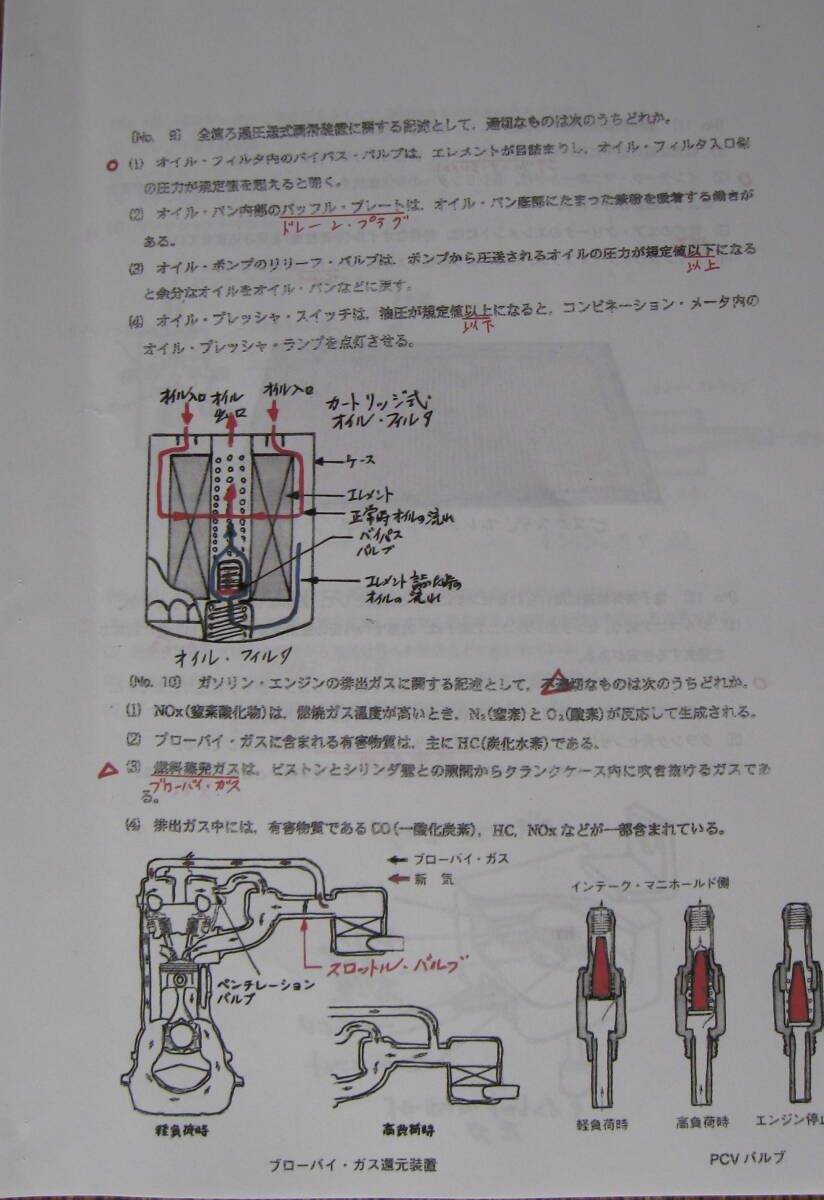 〔No. 9〕 全流ろ過圧送式潤滑装置に関する記述として，適切なものは次のうちどれか。
(1) オイル・フィルタ内のバイパス・バルブは，エレメントが目詰まりし，オイル・フィルタ入口側
の圧力が規定値を超えると開く。
(2) オイル・パン内部のバッフル・プレートは，オイル・パン底部にたまった鉄粉を吸着する働きが
ドレーン・プラグ
ある。
(3) オイル・ポンプのリリーフ・バルブは，ポンプから圧送されるオイルの圧力が規定値以下になる
以上
と余分なオイルをオイル・パンなどに戻す。
(4) オイル・プレッシャ・スイッチは，油圧が規定値以上になると，コンビネーション・メータ内の
以下
オイル・プレッシャ・ランプを点灯させる。
オイル入口 オイル出口 オイル入口
カートリッジ式
オイル・フィルタ
ケース
エレメント
正常時オイルの流れ
バイパス
バルブ
エレメント詰った時の
オイルの流れ
オイル・フィルタ
〔No. 10〕 ガソリン・エンジンの排出ガスに関する記述として，不適切なものは次のうちどれか。
(1) NOx(窒素酸化物)は，燃焼ガス温度が高いとき，N₂(窒素)とO₂(酸素)が反応して生成される。
(2) ブローバイ・ガスに含まれる有害物質は，主にHC(炭化水素)である。
(3) 燃料蒸発ガスは，ピストンとシリンダ壁との隙間からクランクケース内に吹き抜けるガスであ
ブローバイ・ガス
る。
(4) 排出ガス中には，有害物質であるCO(一酸化炭素)，HC，NOxなどが一部含まれている。
ブローバイ・ガス
新 気
インテーク・マニホールド側
スロットル・バルブ
ベンチレーション
バルブ
軽負荷時
高負荷時
軽負荷時 高負荷時 エンジン停止
ブローバイ・ガス還元装置
PCVバルブ